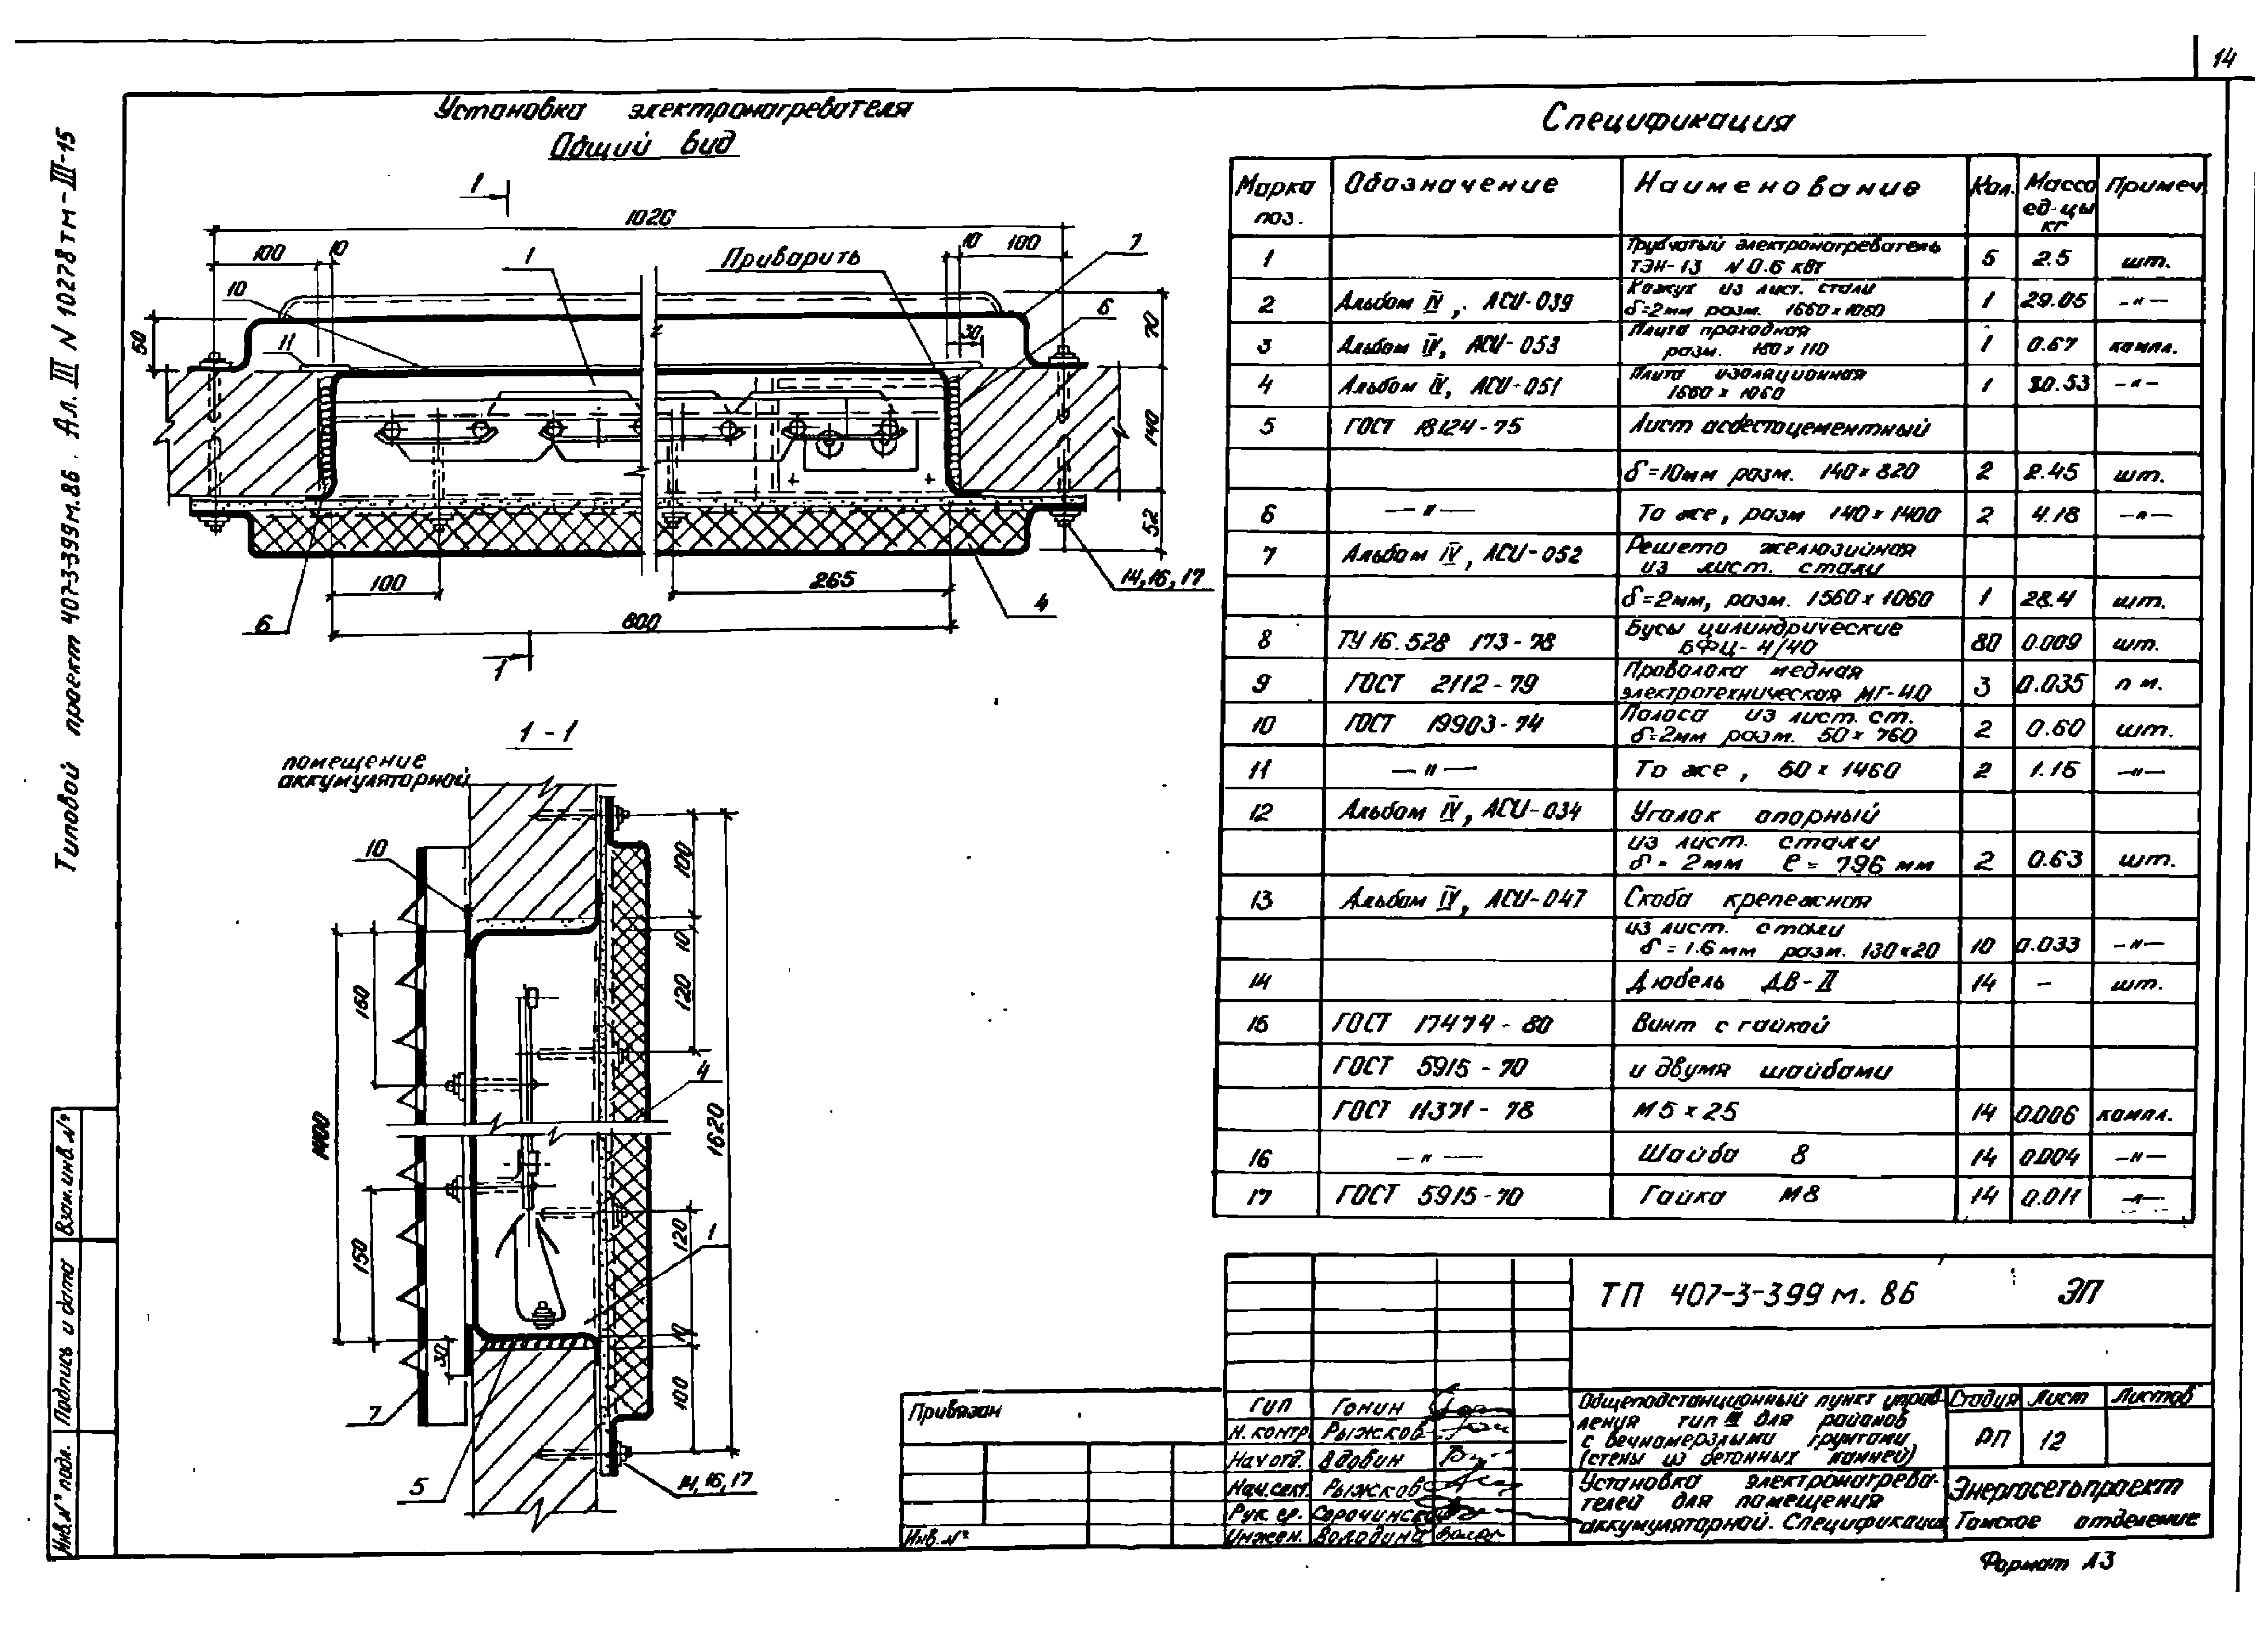 14
Типовой проект 407-3-399м.86. Ал. III N 10278тм-III-15
Установка электронагревателя
Общий вид
1
1020
100
10
1
Приварить
10
100
7
10
11
6
30
50
70
140
52
100
265
14,16,17
4
6
800
1
1-1
помещение
аккумуляторной
10
100
10
120
160
4
1400
1620
150
120
1
10
30
100
7
5
14,16,17
Спецификация
Марка поз. Обозначение Наименование Кол. Масса ед-цы кг Примеч.
1 Трубчатый электронагреватель ТЭН-13 N 0.6 квт 5 2.5 шт.
2 Альбом IV, АСИ-039 Кожух из лист. стали δ=2мм разм. 1660х1060 1 29.05 —"—
3 Альбом IV, АСИ-053 Плита проходная разм. 160х110 1 0.67 компл.
4 Альбом IV, АСИ-051 Плита изоляционная 1660х1060 1 30.53 —"—
5 ГОСТ 18124-75 Лист асбестоцементный
δ=10мм разм. 140х820 2 2.45 шт.
6 —"— То же, разм 140х1400 2 4.18 —"—
7 Альбом IV, АСИ-052 Решето желюзийная из лист. стали
δ=2мм, разм. 1560х1060 1 28.4 шт.
8 ТУ 16.528 173-78 Бусы цилиндрические БФЦ-4/40 80 0.009 шт.
9 ГОСТ 2112-79 Проволока медная электротехническая МГ-40 3 0.035 п м.
10 ГОСТ 19903-74 Полоса из лист. ст. δ=2мм разм. 50х760 2 0.60 шт.
11 —"— То же, 50х1460 2 1.15 —"—
12 Альбом IV, АСИ-034 Уголок опорный
из лист. стали δ=2мм ℓ=796 мм 2 0.63 шт.
13 Альбом IV, АСИ-047 Скоба крепежная
из лист. стали δ=1.6мм разм. 130х20 10 0.033 —"—
14 Дюбель ДВ-II 14 — шт.
15 ГОСТ 17474-80 Винт с гайкой
ГОСТ 5915-70 и двумя шайбами
ГОСТ 11371-78 М5х25 14 0.006 компл.
16 —"— Шайба 8 14 0.004 —"—
17 ГОСТ 5915-70 Гайка М8 14 0.011 —"—
Взам.инв.N°
Подпись и дата
Инв.N° подл.
ТП 407-3-399м.86 ЭП
Привязан
Инв.N°
Гип Гонин
Н.контр. Рыжков
Нач отд. Вдовин
Нач.сект. Рыжков
Рук гр. Сорочинская
Инжен. Володина
Общеподстанционный пункт управ-
ления тип III для районов
с вечномерзлыми грунтами
(стены из бетонных камней)
Стадия Лист Листов
РП 12
Установка электронагрева-
телей для помещения
аккумуляторной. Спецификация
Энергосетьпроект
Томское отделение
Формат А3